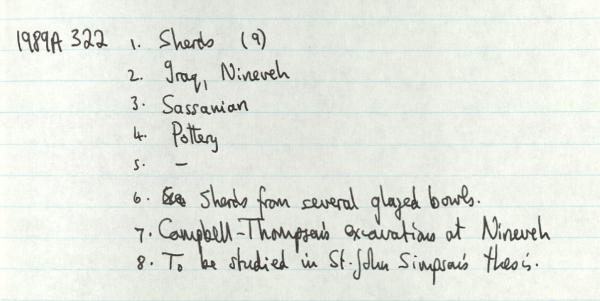 1989A 322 1. Sherds (9)
2. Iraq, Nineveh
3. Sassanian
4. Pottery
5. –
6. Sherds from several glazed bowls.
7. Campbell-Thompson's excavations at Nineveh
8. To be studied in St. John Simpson's thesis.